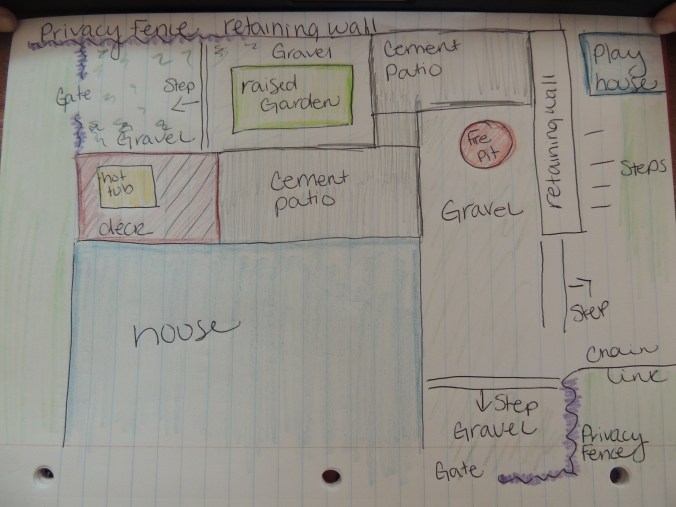 Privacy Fence retaining wall
Gate
Step
Gravel
Gravel
raised
Garden
Cement
Patio
retaining wall
Play
house
Steps
hot
tub
deck
Cement
patio
Fire
Pit
Gravel
house
Step
Chain
link
Step
Gravel
Gate
Privacy
Fence